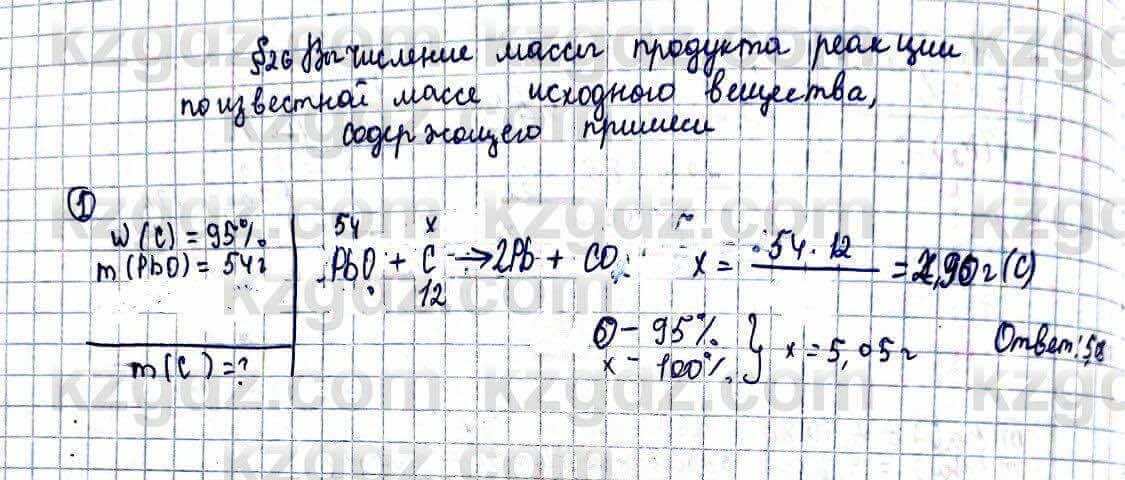 §26 Вычисление массы продукта реакции
по известной массе исходного вещества,
содержащего примеси
①
w(C) = 95%
m(PbO) = 54г
m(C) = ?
54 x
PbO + C → 2Pb + CO
12
x = 54 · 12 = 2,90 г (C)
– 95%
x – 100% } x = 5,05 г
Ответ:
kzgdz.com